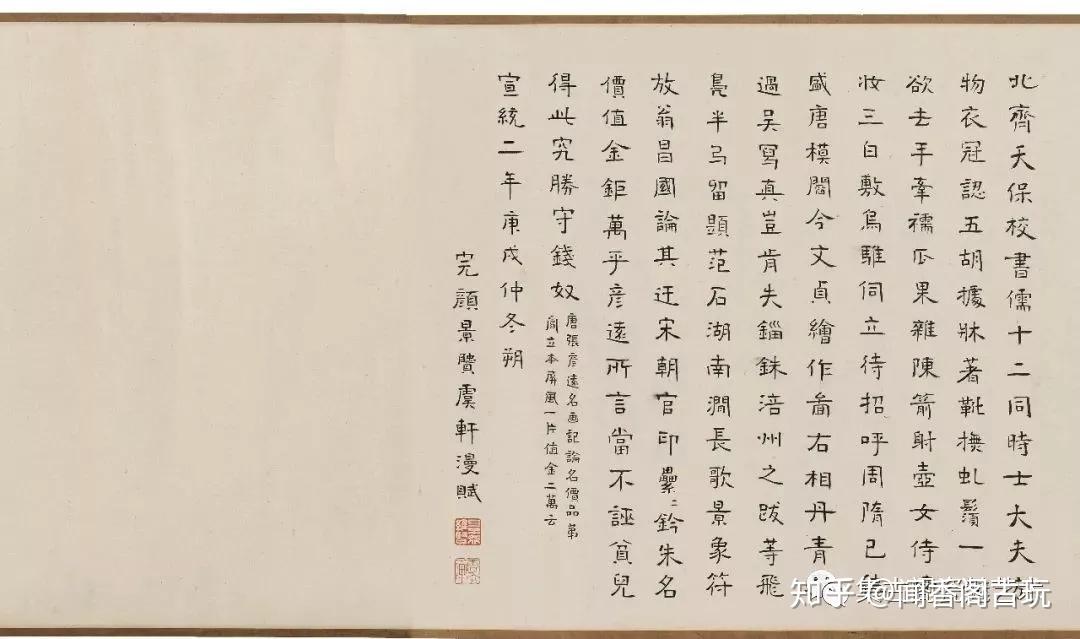 北齊天保校書儒十二同時士大夫
物衣冠認五胡據牀著靴撫虬鬚一
欲去手牽襦瓜果雜陳箭射壺女侍
妝三白敷烏騅伺立待招呼周隋已
盛唐模閻今文貞繪作畵右相丹青
過吳寫真豈肯失錙銖涪州之跋等飛
鳧半烏留題范石湖南澗長歌景象符
放翁昌國論其迂宋朝官印纍〻鈐朱名
價值金鉅萬乎彥遠所言當不誣貧兒
得此究勝守錢奴
唐張彥遠名画記論名價品第
閻立本屏風一片值金二萬云
宣統二年庚戌仲冬朔
完顏景賢虞軒漫賦
知乎 @闻香阁古玩